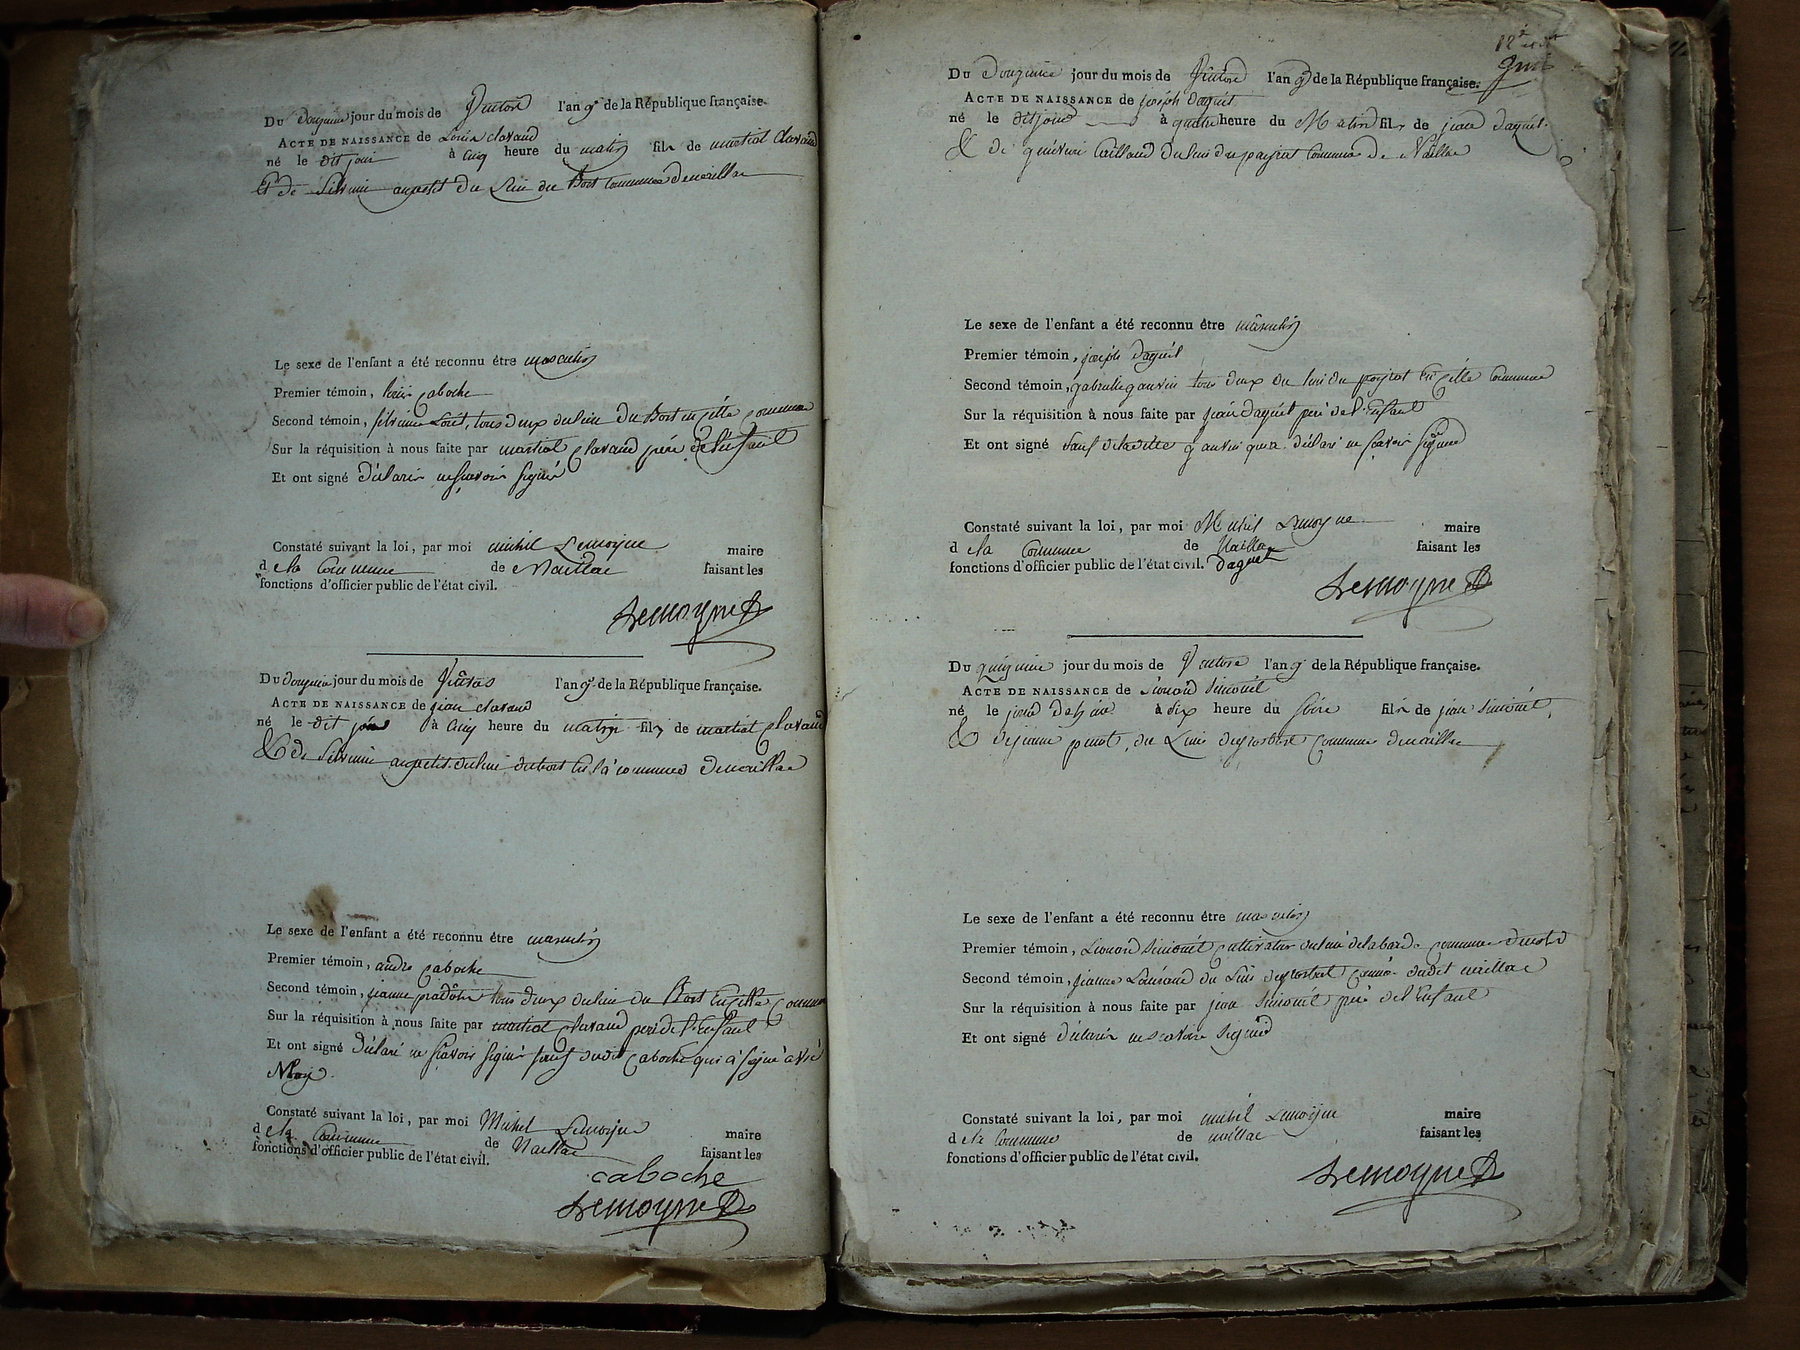 Du Douzieme jour du mois de Ventose l'an 9e de la République française.
ACTE DE NAISSANCE de Louis clavaud
né le dit jour à cinq heure du matin fils de martial clavaud
et de Silvinne du Lieu du Bost commune de naillac
Le sexe de l'enfant a été reconnu être masculin
Premier témoin, Caboche
Second témoin, tous deux du lieu du Bost en cette commune
Sur la réquisition à nous faite par martial clavaud père de l'Enfant
Et ont signé déclarés ne scavoir signer
Constaté suivant la loi, par moi michel Lemoyne maire
d e la commune de Naillac faisant les
fonctions d'officier public de l'état civil.
Lemoyne
Du douzieme jour du mois de l'an 9e de la République française.
ACTE DE NAISSANCE de jean clavaud
né le dit jour à cinq heure du matin fils de martial clavaud
& de Silvinne du lieu du bost en la commune de naillac
Le sexe de l'enfant a été reconnu être masculin
Premier témoin, andré caboche
Second témoin, jeanne tous deux du lieu du Bost En cette commune
Sur la réquisition à nous faite par martial clavaud pere de l'Enfant
Et ont signé déclaré ne scavoir signer sauf caboche qui a signé avec
Moy.
Constaté suivant la loi, par moi Michel Lemoyne maire
d e la commune de Naillac faisant les
fonctions d'officier public de l'état civil.
caboche
Lemoyne
Du Douzieme jour du mois de Ventose l'an 9 de la République française.
ACTE DE NAISSANCE de joseph daguet
né le dit jour à quatre heure du Matin fils de jean daguet
& de du lieu du peyrat commune de Naillac
Le sexe de l'enfant a été reconnu être masculin
Premier témoin, joseph daguet
Second témoin, gabrielle gauvin tous deux du lieu du peyrat en cette commune
Sur la réquisition à nous faite par jean daguet pere de l'Enfant
Et ont signé sauf de la ditte gauvin qui a déclaré ne scavoir signer
Constaté suivant la loi, par moi Michel Lemoyne maire
d e la commune de Naillac faisant les
fonctions d'officier public de l'état civil. Daguet
Lemoyne
Du quinzieme jour du mois de Ventose l'an 9 de la République française.
ACTE DE NAISSANCE de Léonard
né le jour d'hier à six heure du soire fils de jean
& de jeanne du Lieu commune de naillac
Le sexe de l'enfant a été reconnu être masculin
Premier témoin, Léonard cultivateur du lieu de commune
Second témoin, jeanne du Lieu naillac
Sur la réquisition à nous faite par jean pere de l'Enfant
Et ont signé déclarés ne scavoir signer
Constaté suivant la loi, par moi michel Lemoyne maire
d e la commune de naillac faisant les
fonctions d'officier public de l'état civil.
Lemoyne